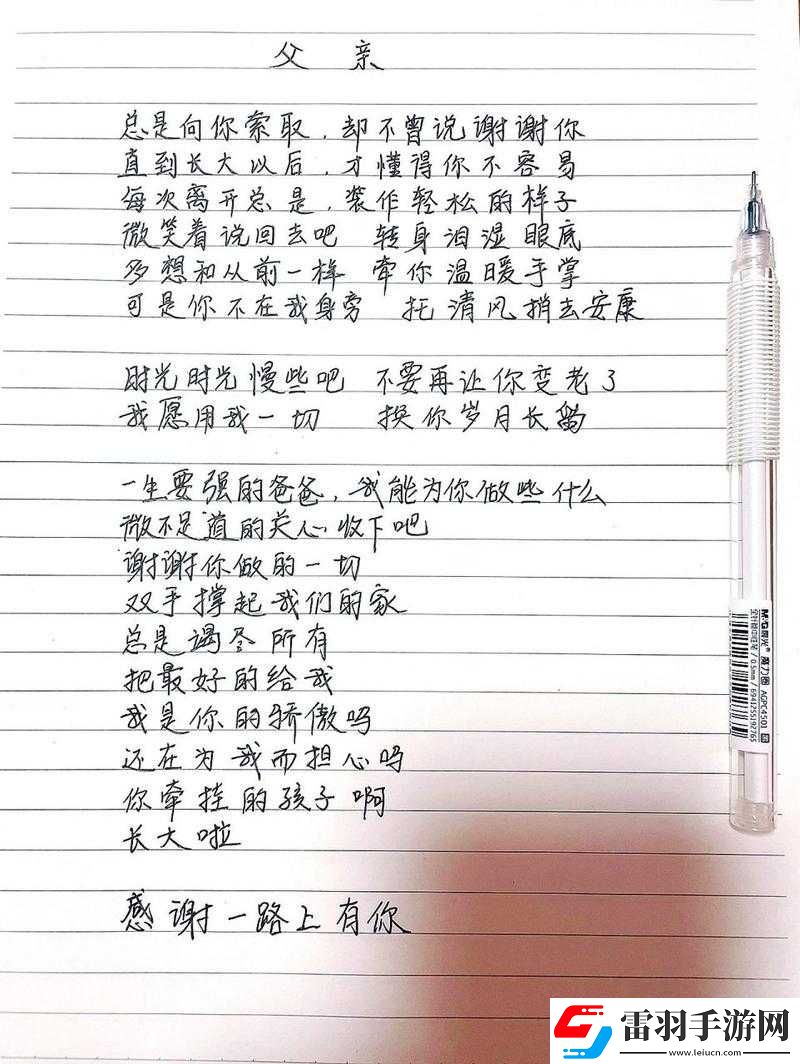 父亲
总是向你索取，却不曾说谢谢你
直到长大以后，才懂得你不容易
每次离开总是，装作轻松的样子
微笑着说回去吧 转身泪湿眼底
多想和从前一样 牵你温暖手掌
可是你不在我身旁 托清风捎去安康
时光时光慢些吧 不要再让你变老了
我愿用我一切 换你岁月长留
一生要强的爸爸，我能为你做些什么
微不足道的关心收下吧
谢谢你做的一切
双手撑起我们的家
总是竭尽所有
把最好的给我
我是你的骄傲吗
还在为我而担心吗
你牵挂的孩子啊
长大啦
感谢一路上有你
M&G晨光® 魔力圈 AGPC4501
全针管中性笔/0.5mm/6941255192765
雷羽手游网
www.leiucn.com